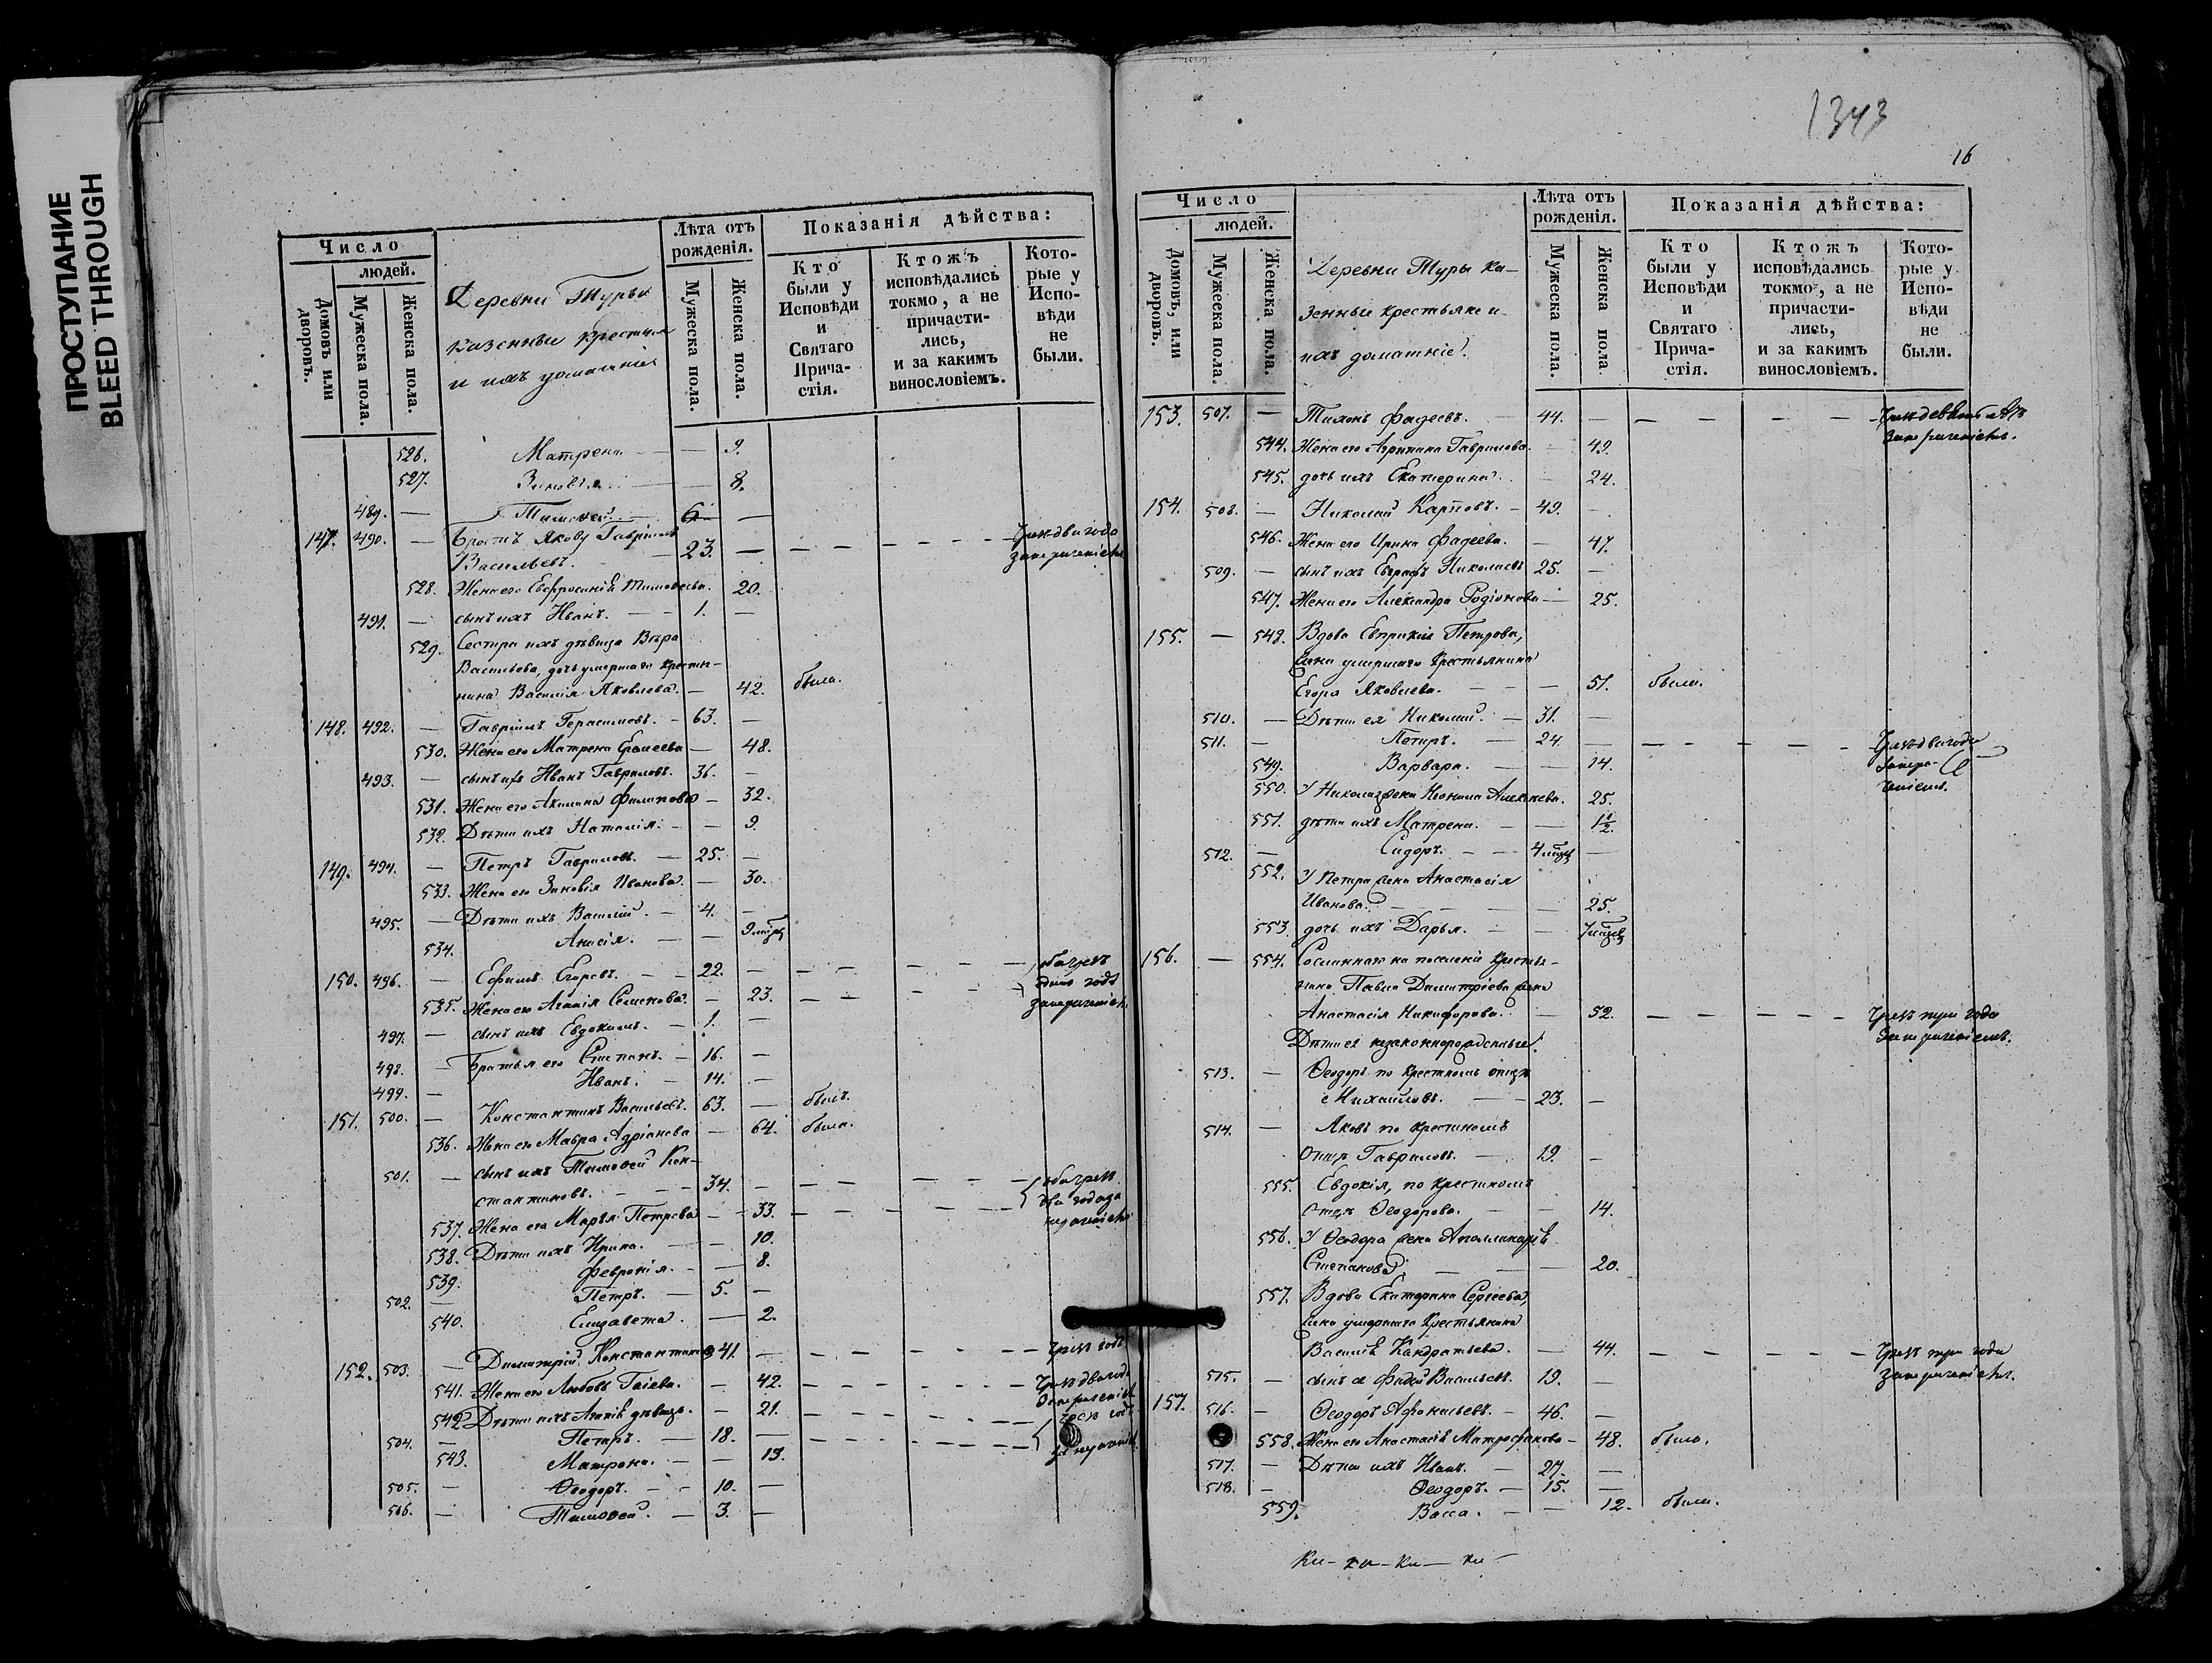 ПРОСТУПАНИЕ
BLEED THROUGH
Число
людей.
Домовъ или дворовъ.
Мужеска пола.
Женска пола.
Деревни Туры
казенные крестьяне
и ихъ домашніе
Лѣта отъ рожденія.
Мужеска пола.
Женска пола.
Показанія дѣйства:
Кто были у Исповѣди и Святаго Прича-стія.
Ктожъ исповѣдались токмо, а не причасти-лись, и за какимъ винословіемъ.
Кото-рые у Испо-вѣди не были.
526. Матрена. — — 9.
527. Зиновія. — — 8.
489. — Тимоѳей. — 6 —
147. 490. — Братъ Якову Гавріилъ
Васильевъ. — 23. — — — — — чрез два года
за нераченіемъ
528. Жена его Евфросинія Тимоѳеева. 20.
491. — сынъ ихъ Иванъ. — — 1. —
529. Сестра ихъ дѣвица Вѣра
Васильева, дочь умершаго крестья-
нина Василія Яковлева. — 42. была.
148. 492. — Гавріилъ Герасимовъ. — 63. —
530. Жена его Матрена Ермеева — 48.
493. — сынъ ихъ Иванъ Гавриловъ. 36. —
531. Жена его Акилина Филипова — 32.
532. Дѣти ихъ Наталія. — — 9.
149. 494. — Петръ Гавриловъ. — 25. —
533. Жена его Зиновія Иванова. — 30.
495. — Дѣти ихъ Василій. — 4. —
534. Анисія. — — 9 мѣсяц
150. 496. — Ефимъ Егоровъ. — — 22. — — — — — оба чрезъ
одинъ годъ
535. Жена его Агапія Семенова. — 23. — — —
за нераченіемъ
497. — сынъ ихъ Евдокимъ. — 1. —
498. — Братья его Степанъ. — 16. —
499. — Иванъ. — 14. —
151. 500. — Константинъ Васильевъ. 63. — былъ.
536. Жена его Мавра Адріанова — 64. была.
501. — сынъ ихъ Тимоѳей Кон-
стантиновъ. — — — 34. — — — — — — оба чрез
два года за
нераченіемъ
537. Жена его Марья Петрова — 33. — — — — —
538. Дѣти ихъ Ирина. — — 10.
539. Февронія. — — 8.
502. — Петръ. — 5. —
540. Елизавета. — 2.
152. 503. — Димитрій Константиновъ 41. — — — — — чрезъ годъ
541. Жена его Любовь Гаіева. — 42. — — — — — чрез два года
за нераченіемъ
542. Дѣти ихъ Агапія дѣвица. — 21. — — — — — чрезъ годъ
504. — Петръ. — 18. — — — — — за нераченіемъ
543. Матрона. — — 13.
505. — Ѳеодоръ. — — 10. —
506. — Тимоѳей. — 3. —
1343
16
Число
людей.
Домовъ, или дворовъ.
Мужеска пола.
Женска пола.
Деревни Туры ка-
зенные крестьяне и
ихъ домашніе.
Лѣта отъ рожденія.
Мужеска пола.
Женска пола
Показанія дѣйства:
Кто были у Исповѣди и Святаго Прича-стія.
Ктожъ исповѣдались токмо, а не причасти-лись, и за какимъ винословіемъ.
Кото-рые у Испо-вѣди не были.
153. 507. — Тихонъ Фадеевъ. — 44. — — — —
за нераченіемъ.
544. Жена его Агрипина Гаврилова. — 49.
545. дочь ихъ Екатерина. — 24.
154. 508. — Николай Карповъ. — 49. —
546. Жена его Ирина Фадеева. — 47.
509. — сынъ ихъ Евграфъ Николаевъ 25. —
547. Жена его Александра Родіонова — 25.
155. — 548. Вдова Евпраксія Петрова,
жена умершаго крестьянина
Егора Яковлева. — — — 51. была.
510. — Дѣти ея Николай. — 31. —
511. — Петръ. — 24. — — — — — Чрезъ два года
за нера-
ченіемъ.
549. Варвара. — — 14.
550. У Николая жена Неонила Алексѣева. 25.
551. дѣти ихъ Матрена. — — 1½.
512. — Сидоръ. — — 4 мѣсяц —
552. У Петра жена Анастасія
Иванова. — — — 25.
553. дочь ихъ Дарья. — — 7 мѣсяц
156. — 554. Сосланнаго на поселеніе крестья-
нина Павла Димитріева жена
Анастасія Никифорова. — 52. — — — — — Чрезъ три года
за нераченіемъ.
Дѣти ея незаконнорожденные:
513. — Ѳеодоръ по крестномъ отцѣ
Михайловъ. — — 23. —
514. — Яковъ по крестномъ
отцѣ Гавриловъ. — 19. —
555. Евдокія, по крестномъ
отцѣ Ѳеодорова. — — 14.
556. У Ѳеодора жена Аполлинарія
Степанова. — — — 20.
557. Вдова Екатерина Сергѣева,
жена умершаго крестьянина
Василія Кандратьева. — 44. — — — — — Чрезъ три года
за нераченіемъ.
515. — сынъ ея Фадей Васильевъ. 19. —
157. 516. — Ѳеодоръ Афанасьевъ. — 46. —
558. Жена его Анастасія Митрофанова — 48. была.
517. — Дѣти ихъ Иванъ. — 27. —
518. — Ѳеодоръ. — 15. —
559. Васса. — — 12. была.